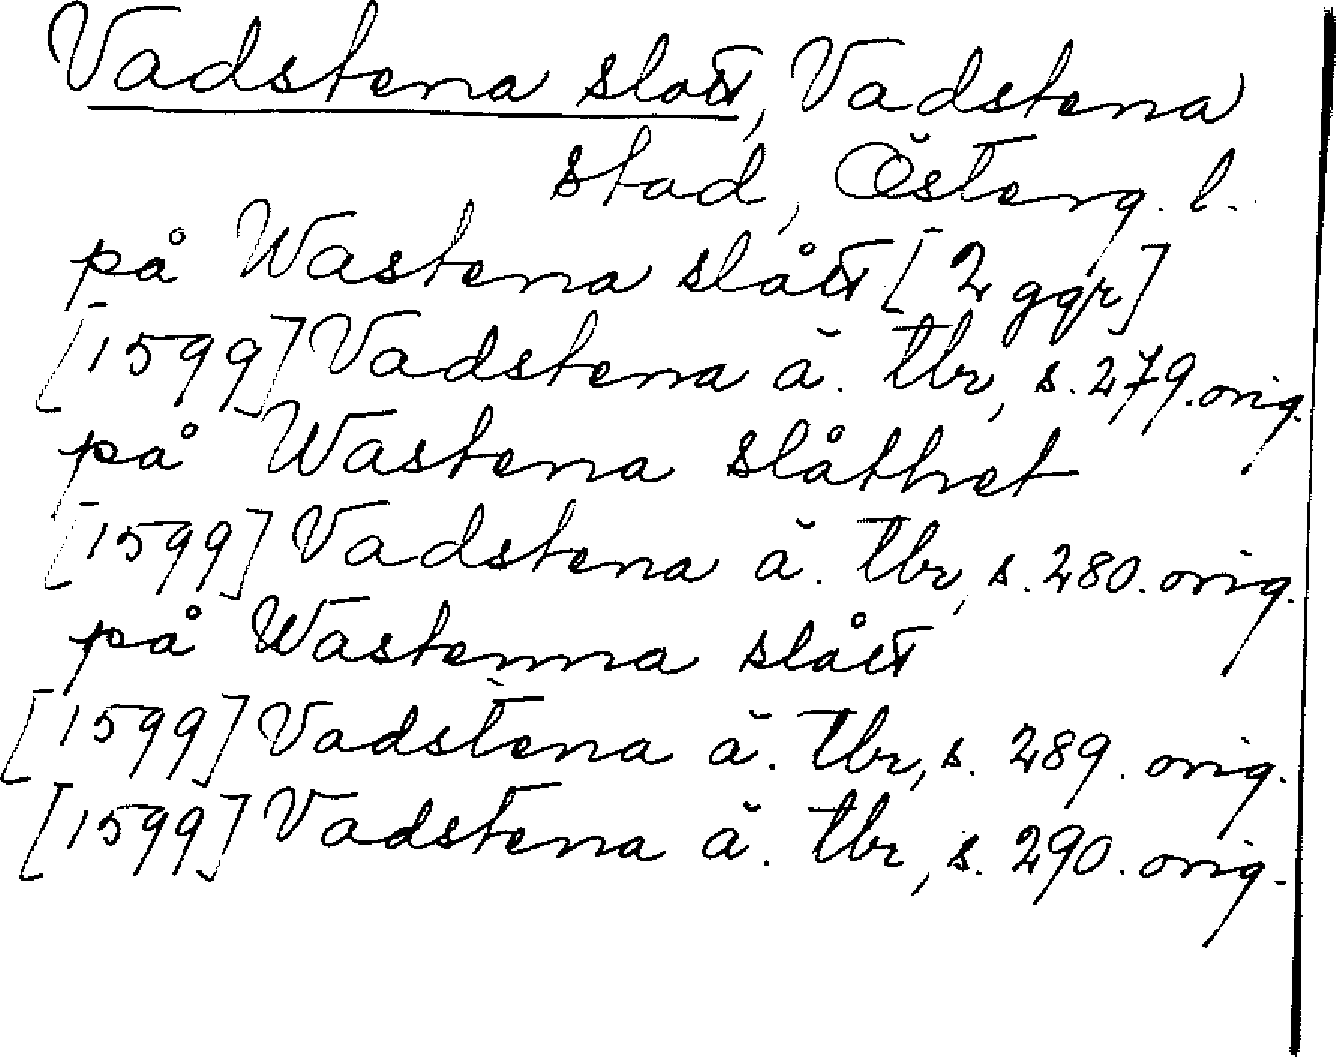 Vadstena slott, Vadstena
stad, Österg. l.
på Wastena slått [2 ggr]
[1599] Vadstena ä. tbr, s. 279. orig.
på Wastena slåthet
[1599] Vadstena ä. tbr, s. 280. orig.
på Wastenna slått
[1599] Vadstena ä. tbr, s. 289. orig.
[1599] Vadstena ä. tbr, s. 290. orig.